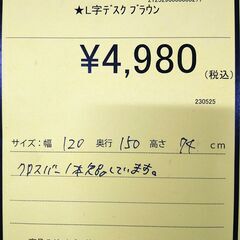 ★L字デスク ブラウン
¥4,980
(税込)
230525
サイズ:幅 120 奥行 150 高さ 74 cm
クロスバー1本欠品しています。